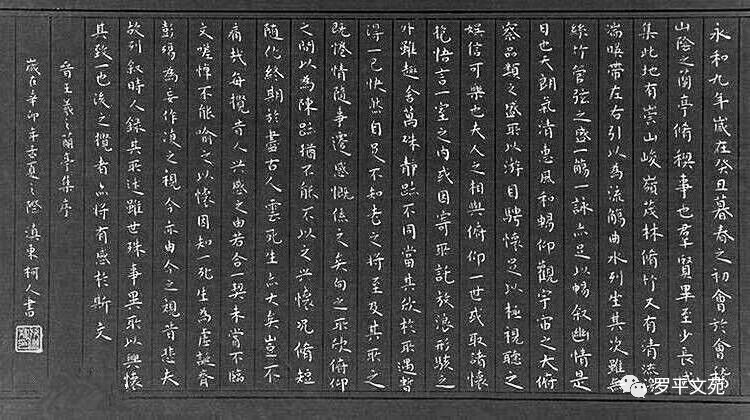 永和九年歲在癸丑暮春之初會於會稽
山陰之蘭亭脩稧事也羣賢畢至少長咸
集此地有崇山峻嶺茂林脩竹又有清流
湍暎帶左右引以為流觴曲水列坐其次雖無
絲竹管弦之盛一觴一詠亦足以暢敘幽情是
日也天朗氣清惠風和暢仰觀宇宙之大俯
察品類之盛所以游目騁懷足以極視聽之
娛信可樂也夫人之相與俯仰一世或取諸懷
抱悟言一室之內或因寄所託放浪形骸之
外雖趣舍萬殊靜躁不同當其欣於所遇暫
得一己快然自足不知老之將至及其所之
既惓情隨事遷感慨係之矣向之所欣俯仰
之間以為陳跡猶不能不以之興懷況脩短
隨化終期於盡古人云死生亦大矣豈不
痛哉每攬昔人興感之由若合一契未嘗不臨
文嗟悼不能喻之以懷固知一死生為虛誕齊
彭殤為妄作後之視今亦由今之視昔悲夫
故列敘時人錄其所述雖世殊事異所以興懷
其致一也後之攬者亦將有感於斯文
晉王羲之蘭亭集序
歲在辛卯年夏之際滇東柯人書
罗平文苑